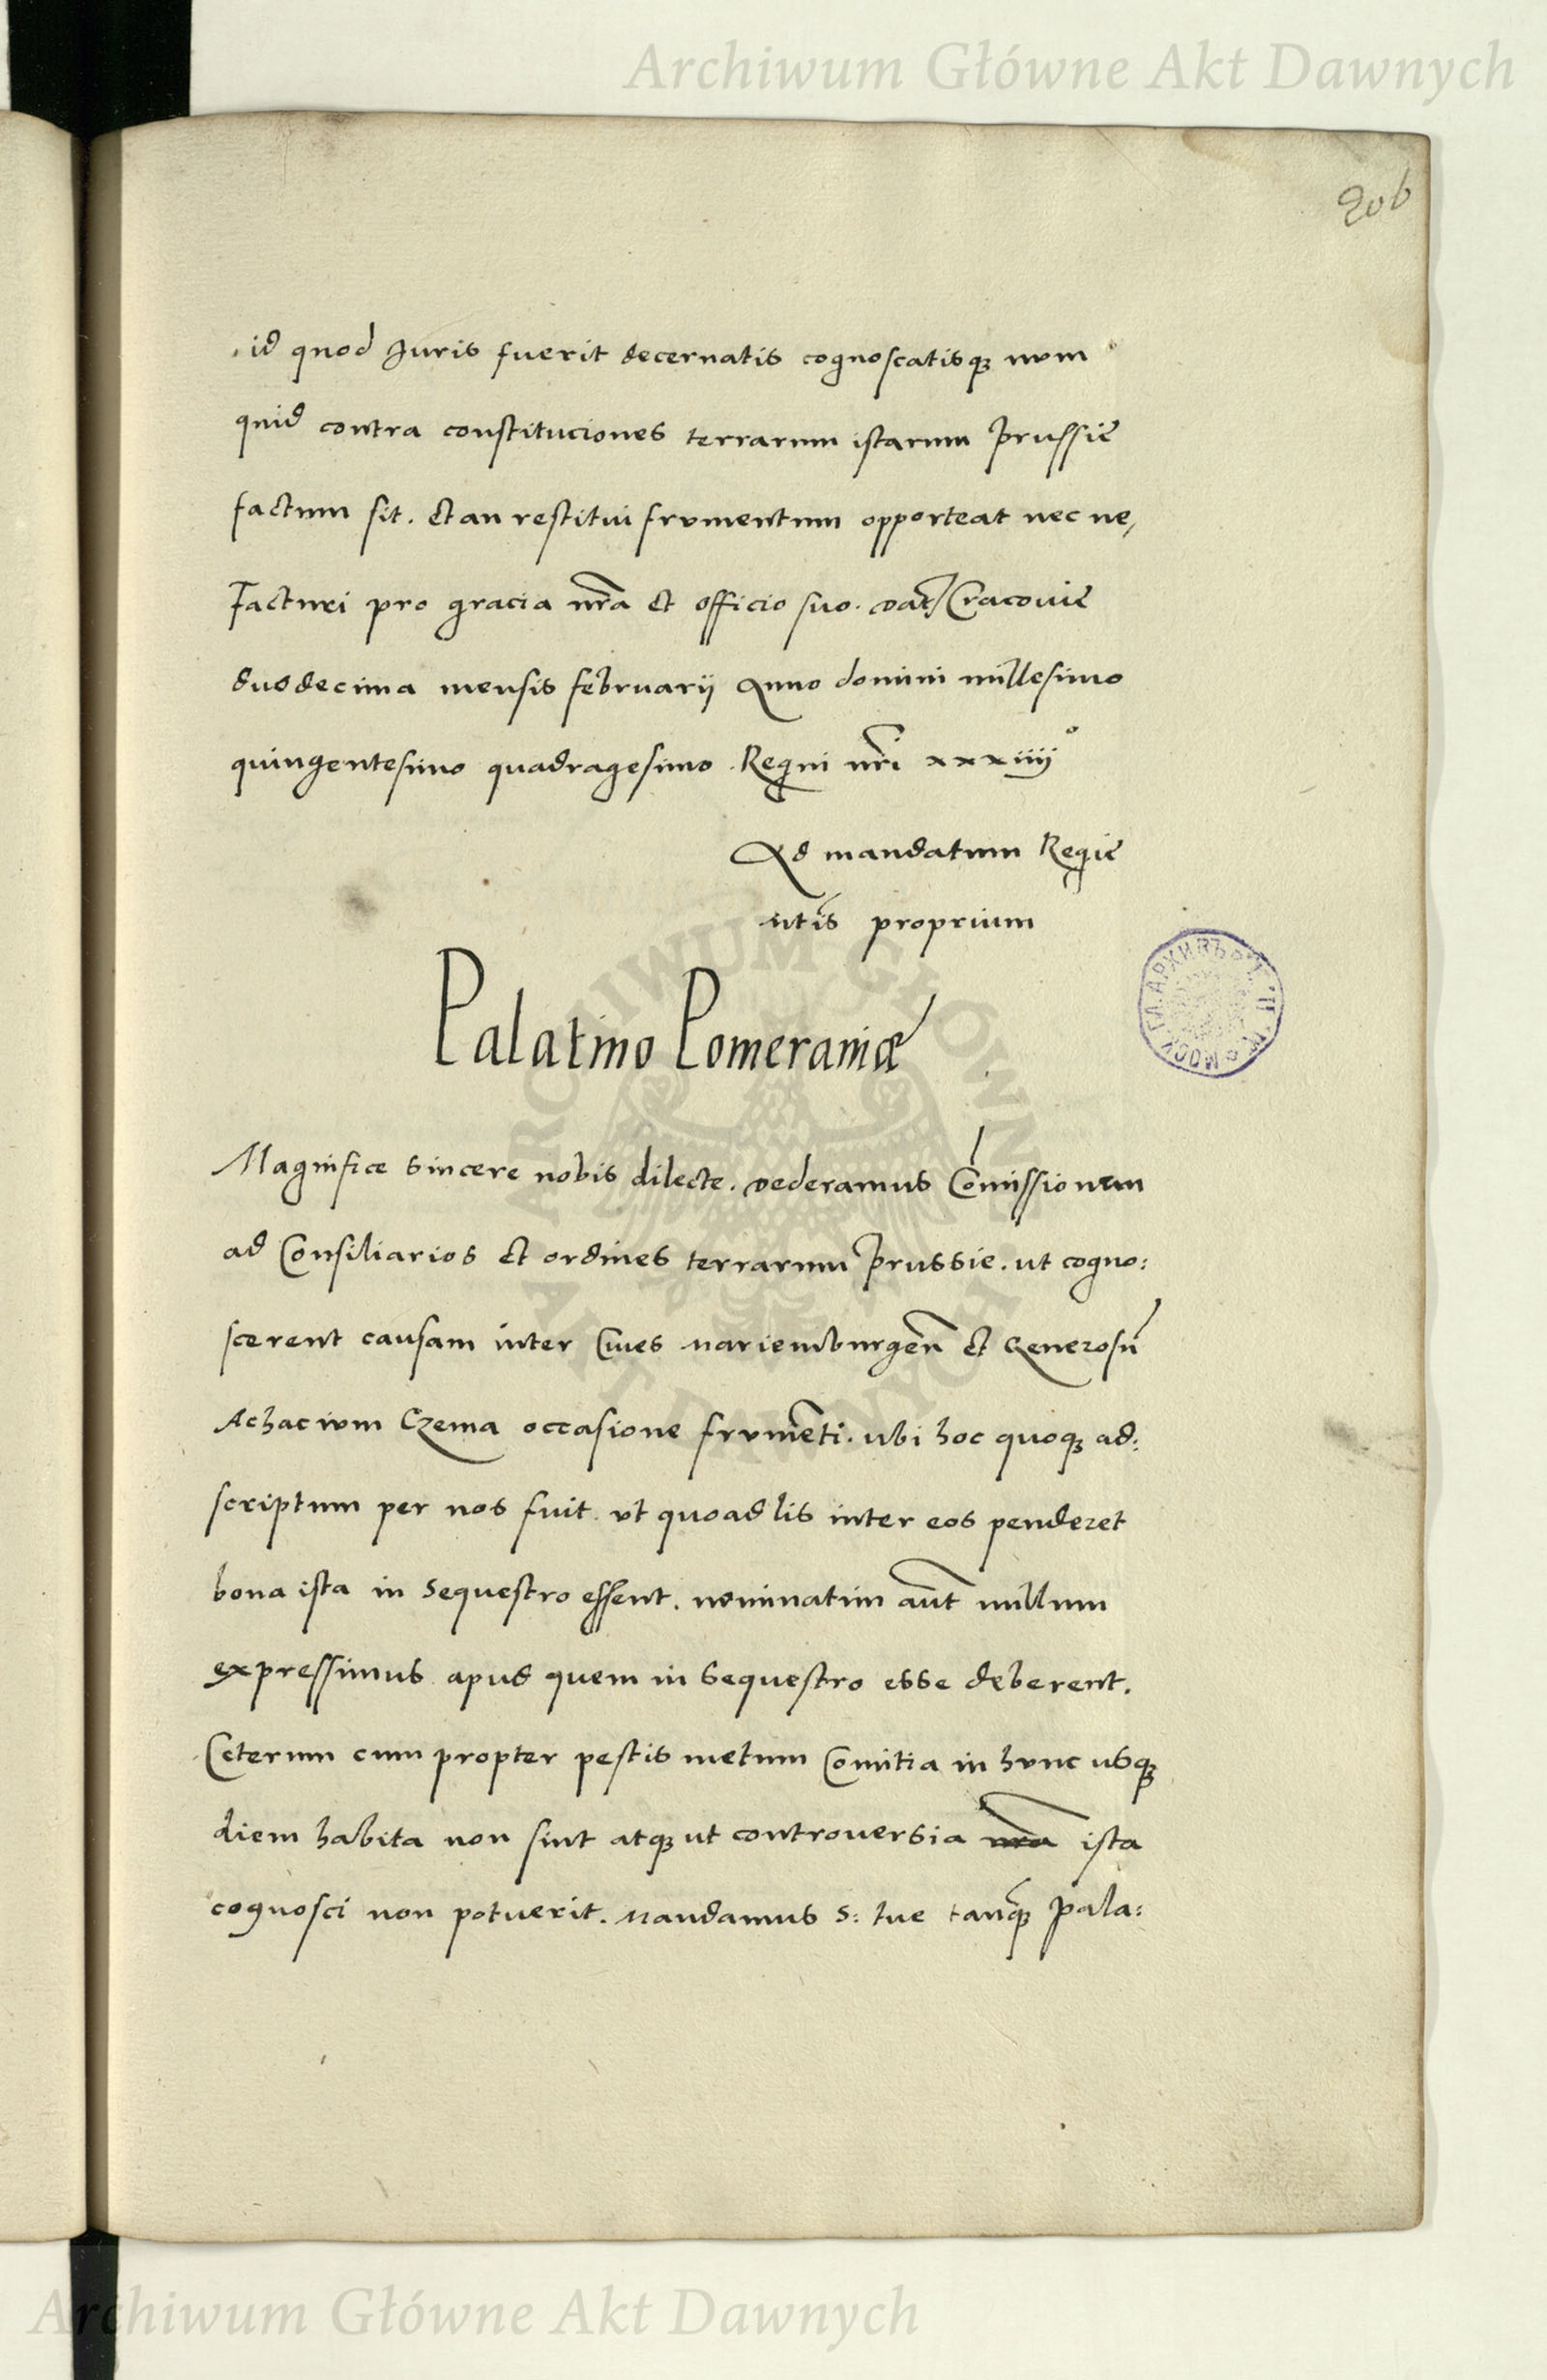 Archiwum Główne Akt Dawnych
206
id quod Juris fuerit decernatis cognoscatisq3 num
quid contra constituciones terrarum istarum Prussie
factum sit. Et an restitui frumentum opporteat nec ne,
Facturi pro gracia nrã et officio suo. Dat Cracouie
duodecima mensis februarij Anno domini millesimo
quingentesimo quadragesimo. Regni nrĩ xxxiiij°
Ad mandatum Regie
mtis proprium
Palatino Pomeraniæ
Magnifice sincere nobis dilecte. Dederamus Cõmissionem
ad Consiliarios et ordines terrarum Prussie. ut cogno:
scerent causam inter Ciues Mariemburgeñ et Generosũ
Achacium Czema occasione frumẽti. ubi hoc quoq3 ad:
scriptum per nos fuit. ut quoad lis inter eos penderet
bona ista in sequestro essent. nominatim aũt nullum
expressimus apud quem in sequestro esse deberent.
Ceterum cum propter pestis metum Comitia in hunc usq3
diem habita non sint atq3 ut controuersia nrã ista
cognosci non potuerit. Mandamus S: tue tanq̃3 Pala:
ARCHIWUM GŁÓWNE
AKT DAWNYCH
Archiwum Główne Akt Dawnych